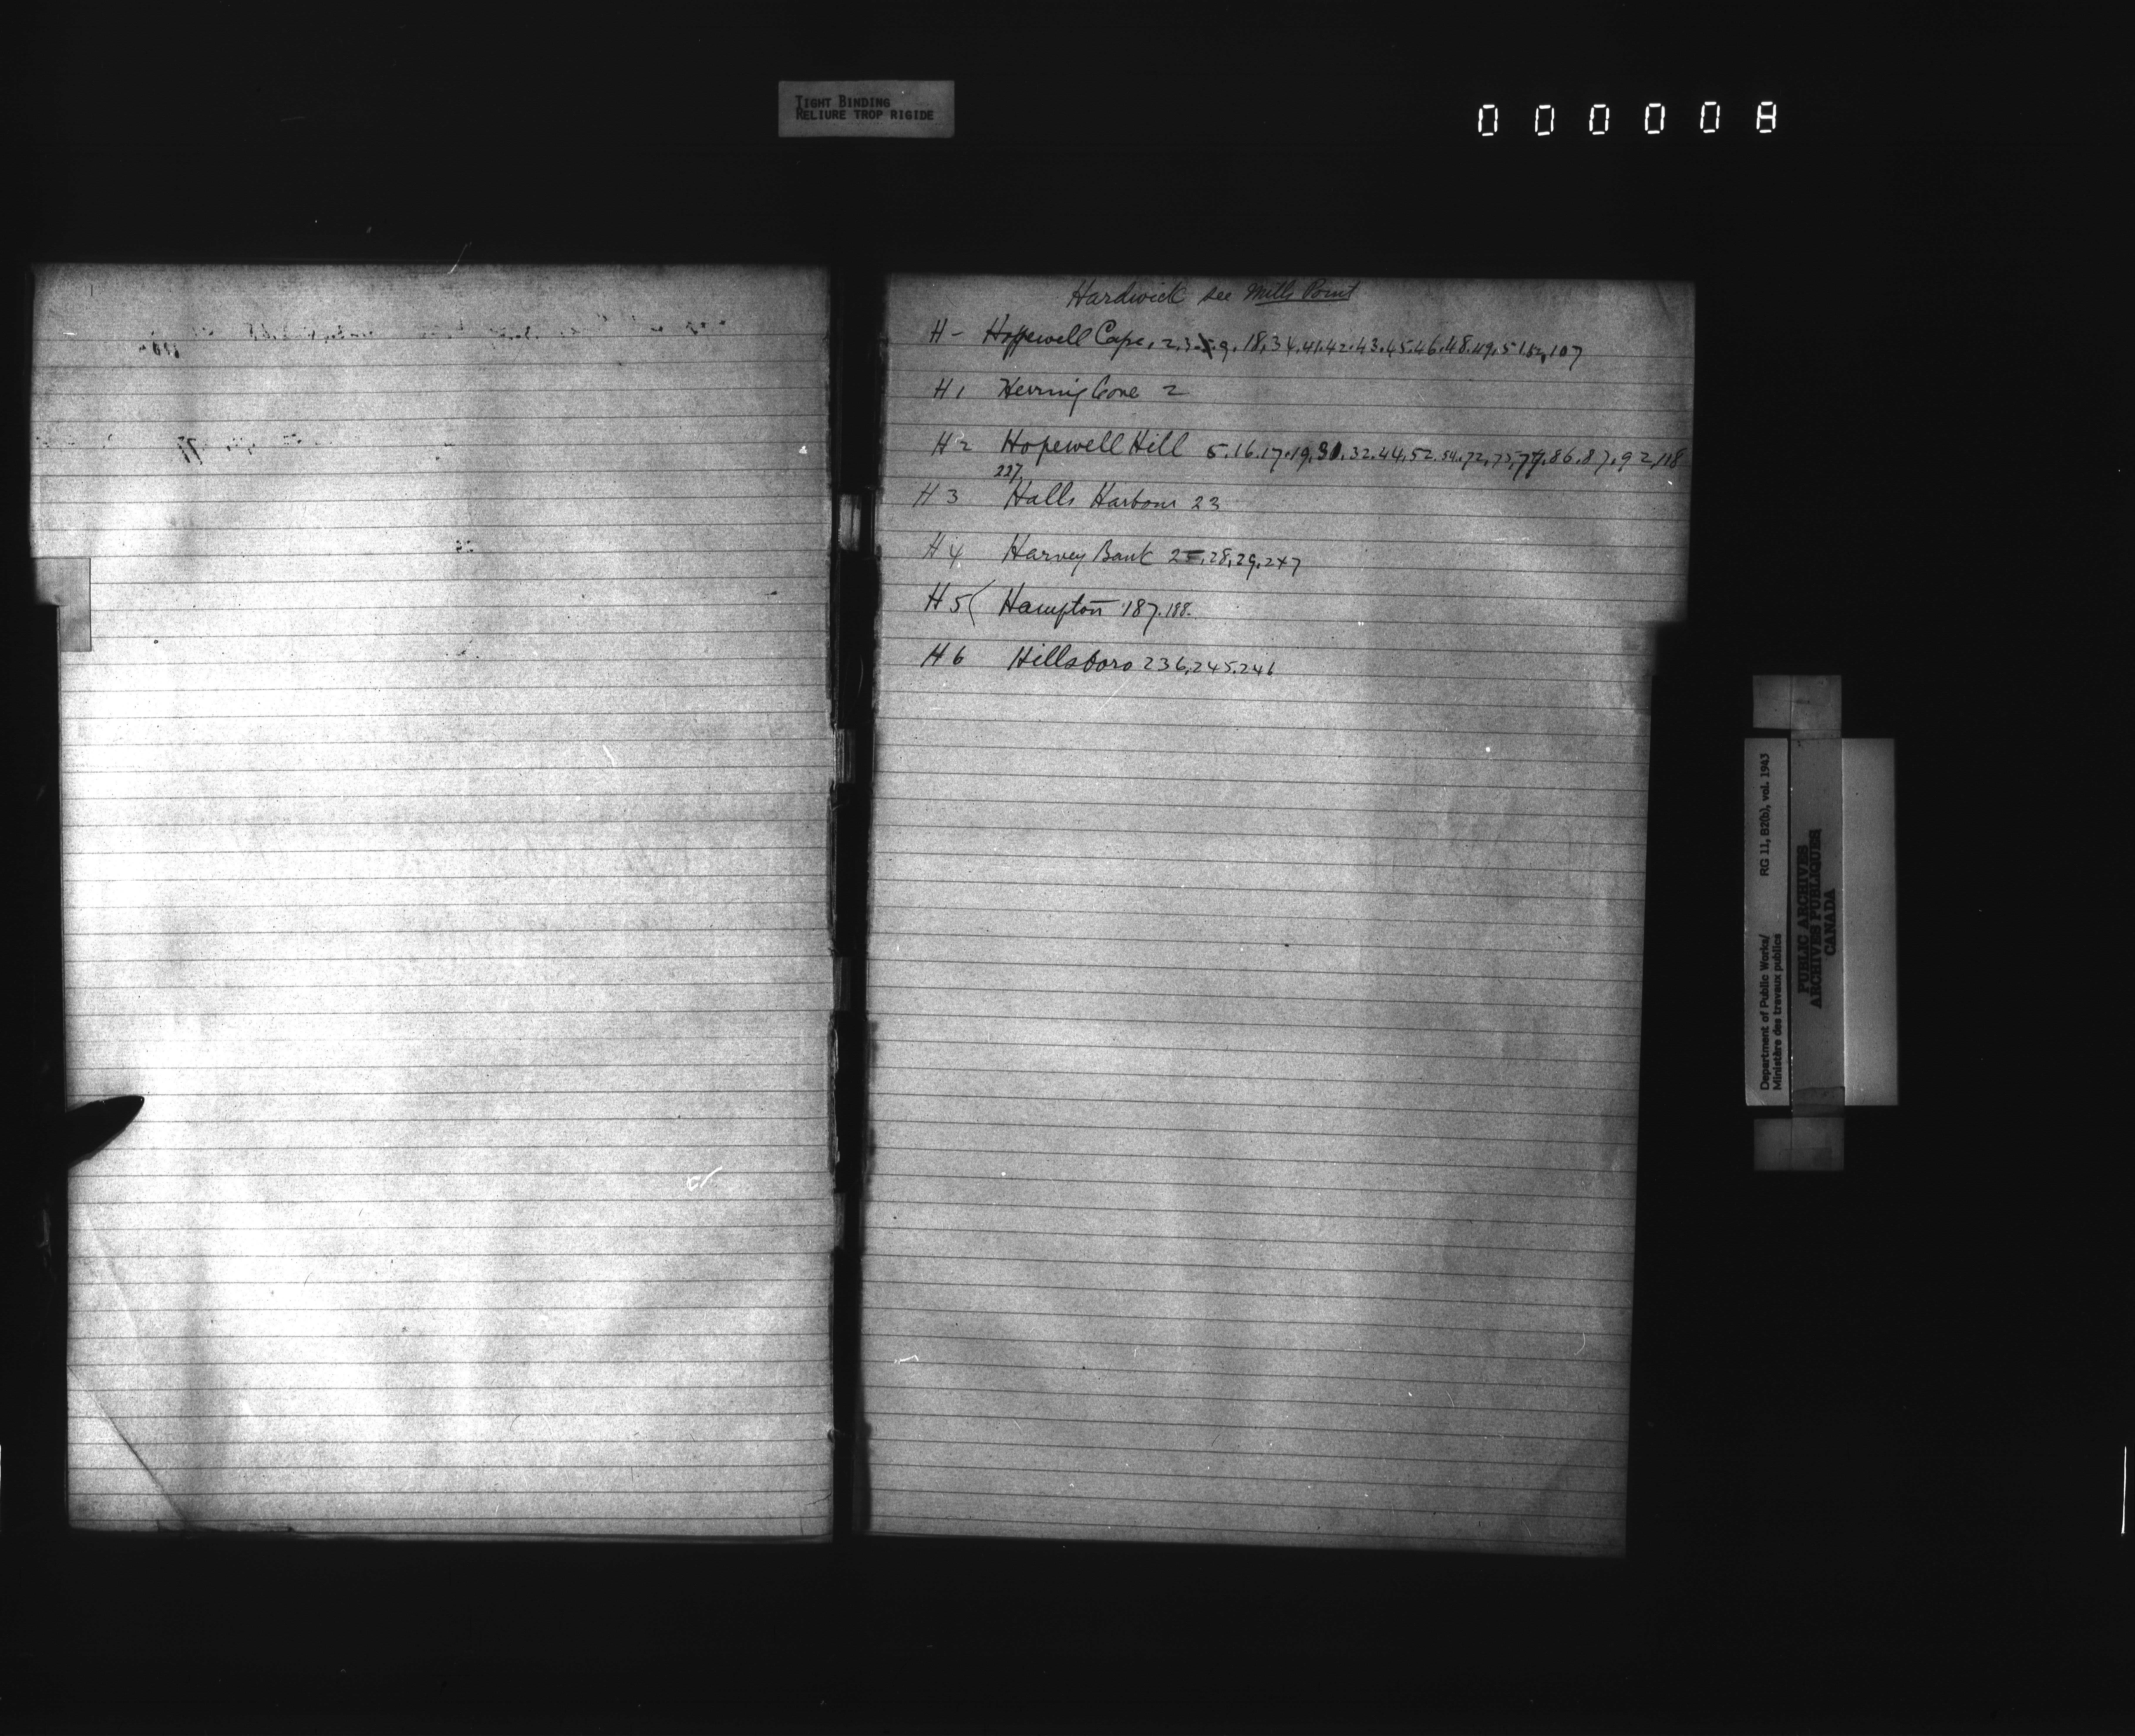 TIGHT BINDING
RELIURE TROP RIGIDE
000008
Hardwick see Mills Point
H - Hopewell Cape, 2.3.5.9.18.34.41.42.43.45.46.48.49.51.52,107
H 1 Herring Cove 2
H 2 Hopewell Hill 5.16.17.19.30.32.44.52.54.72.75.77.86.87.92.118
227
H 3 Halls Harbour 23
H 4 Harvey Bank 25,28,29,247
H 5 ( Hampton 187.188.
H 6 Hillsboro 236.245.246
Department of Public Works/ RG 11, B2(b), vol. 1943
Ministère des travaux publics
PUBLIC ARCHIVES
ARCHIVES PUBLIQUES
CANADA